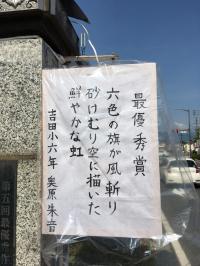 最優秀賞
六色の旗が風斬り
砂けむり空に描いた
鮮やかな虹
吉田小六年 奥原朱音
第五回最優秀作